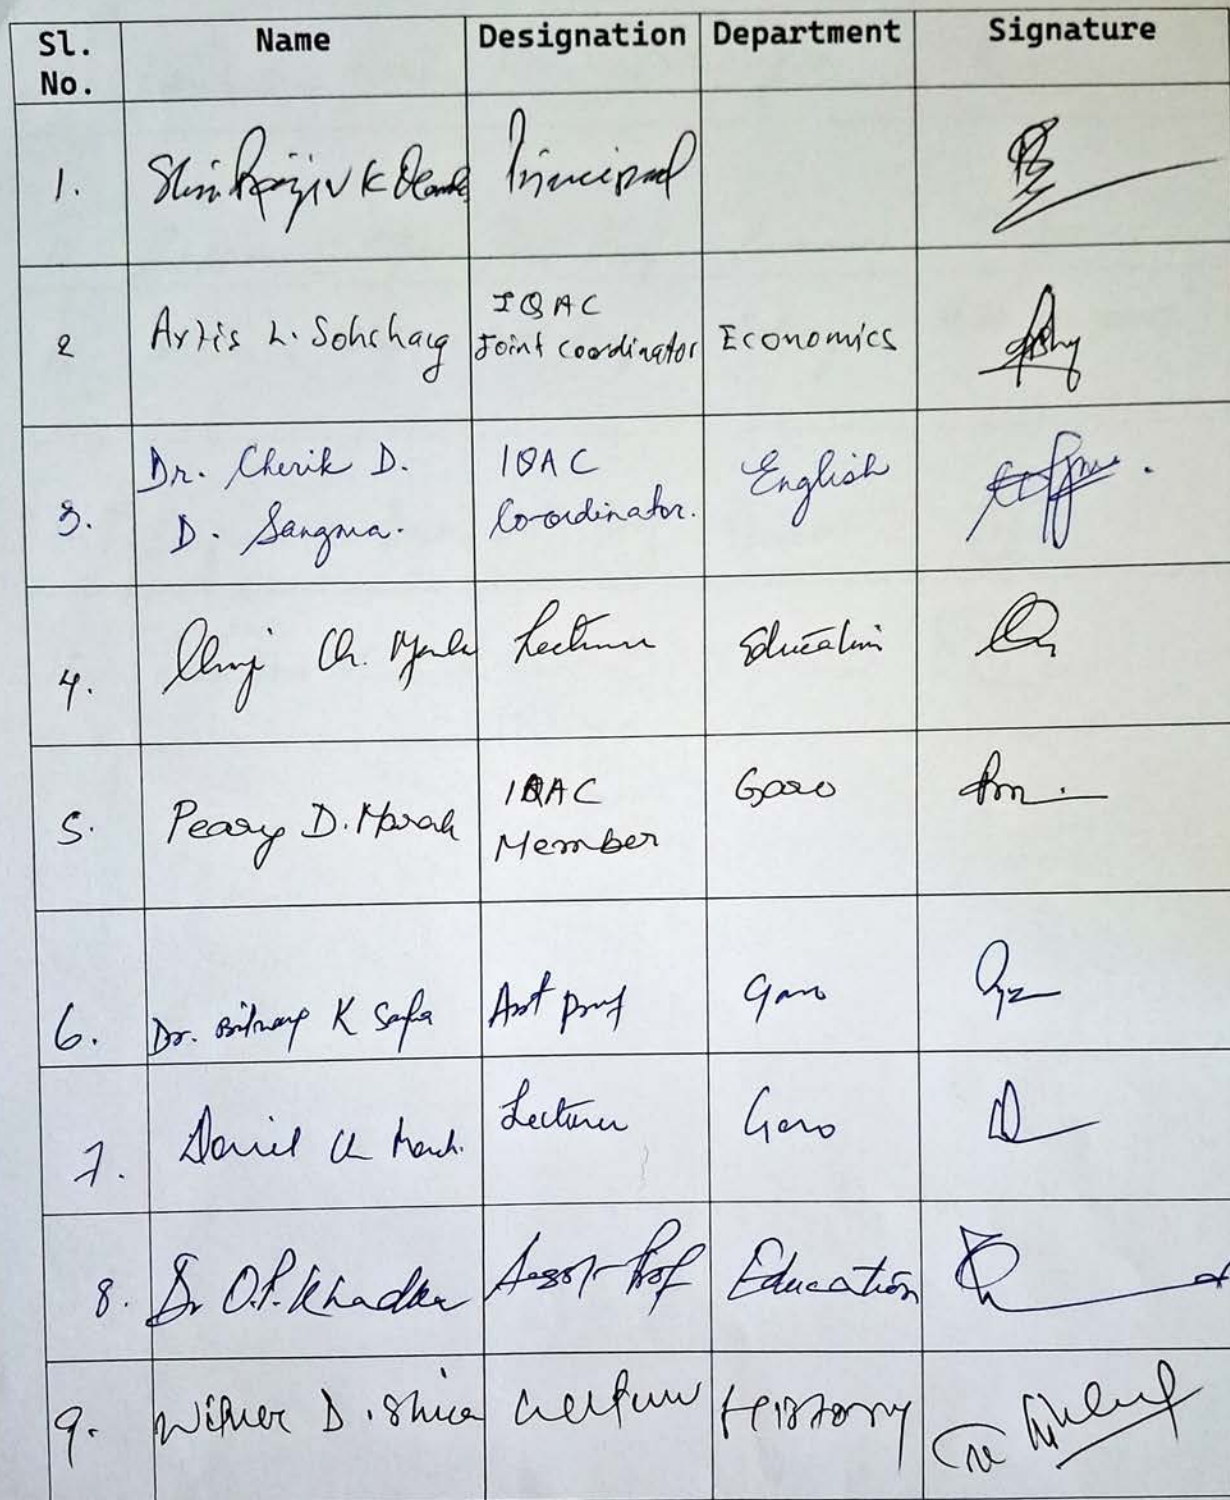 Sl. No. Name Designation Department Signature
1. Shri Rajiv K Principal
2 Artis L. Sohchag IQAC Joint Coordinator Economics
3. Dr. Cherik D. D. Sangma. IQAC Co-ordinator. English
4. Ch. Lecturer Education
5. Peary D. Marak IQAC Member Garo
6. Dr. K Asst Prof Garo
7. Daniel Ch Lecturer Garo
8. Dr O.P. Khadka Assot-Prof Education
9. D. Shira Lecturer History